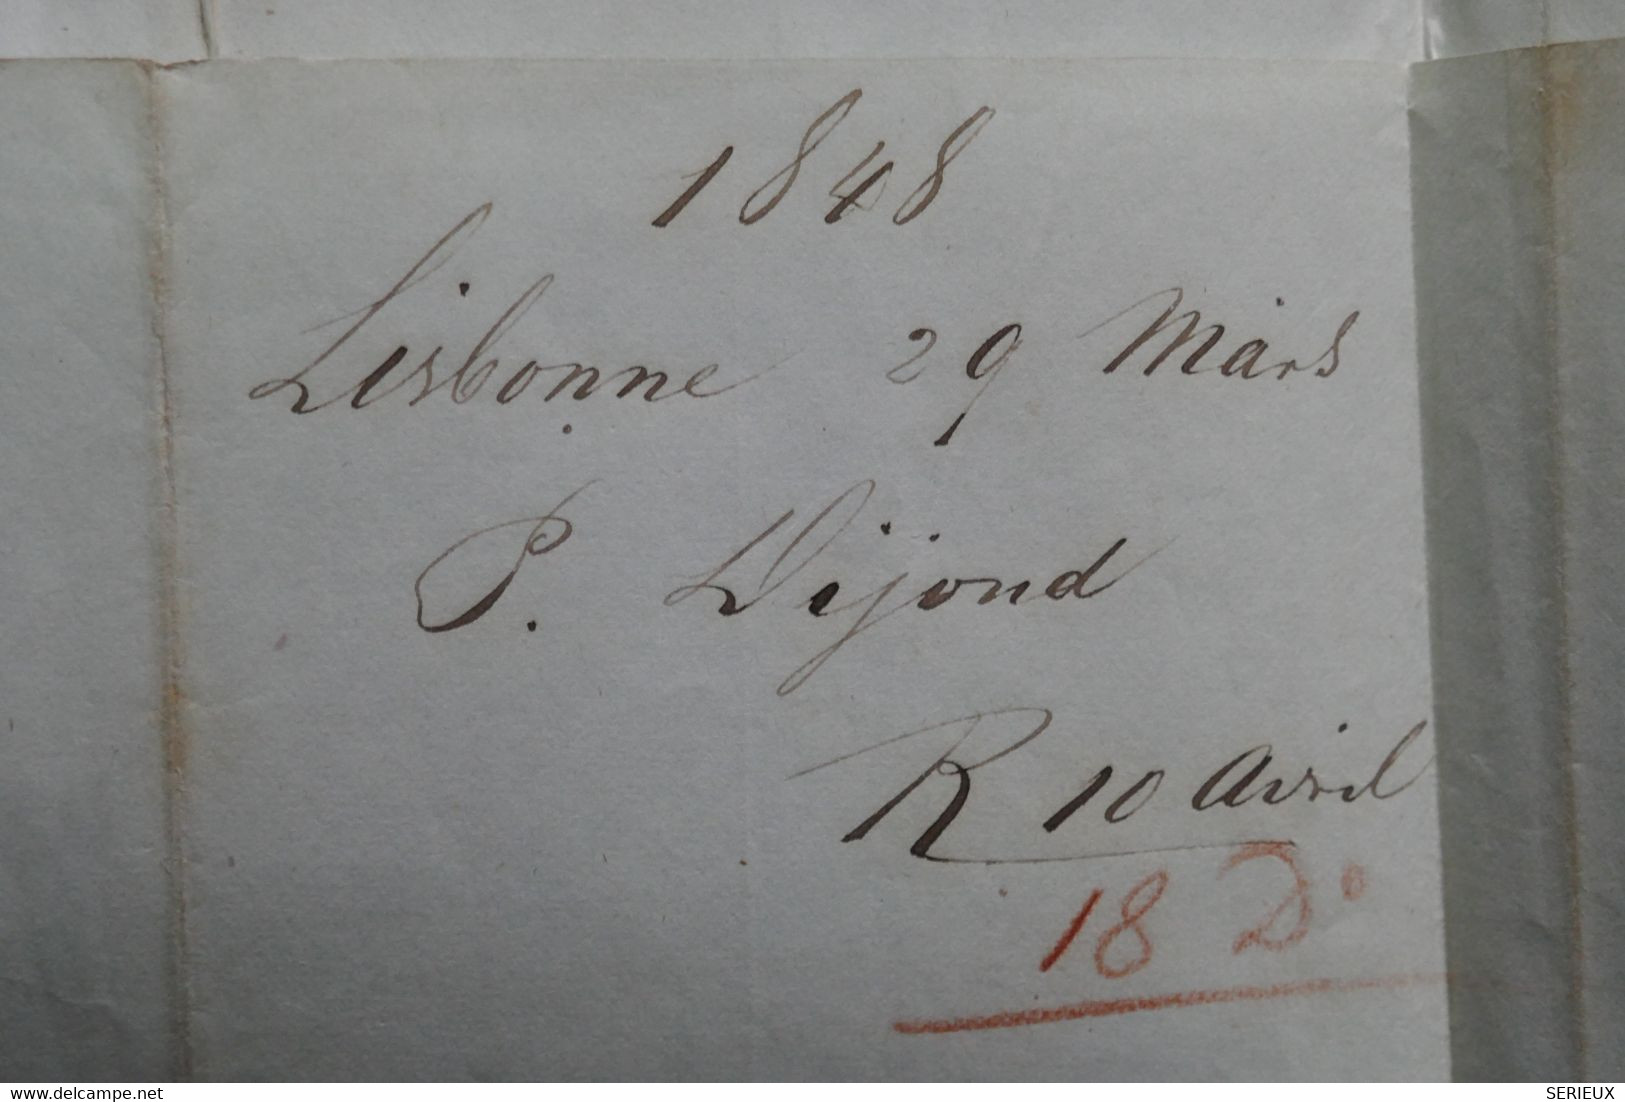 1848
Lisbonne 29 Mars
P. Dijond
R 10 Avril
18 Do
delcampe.net
SERIEUX